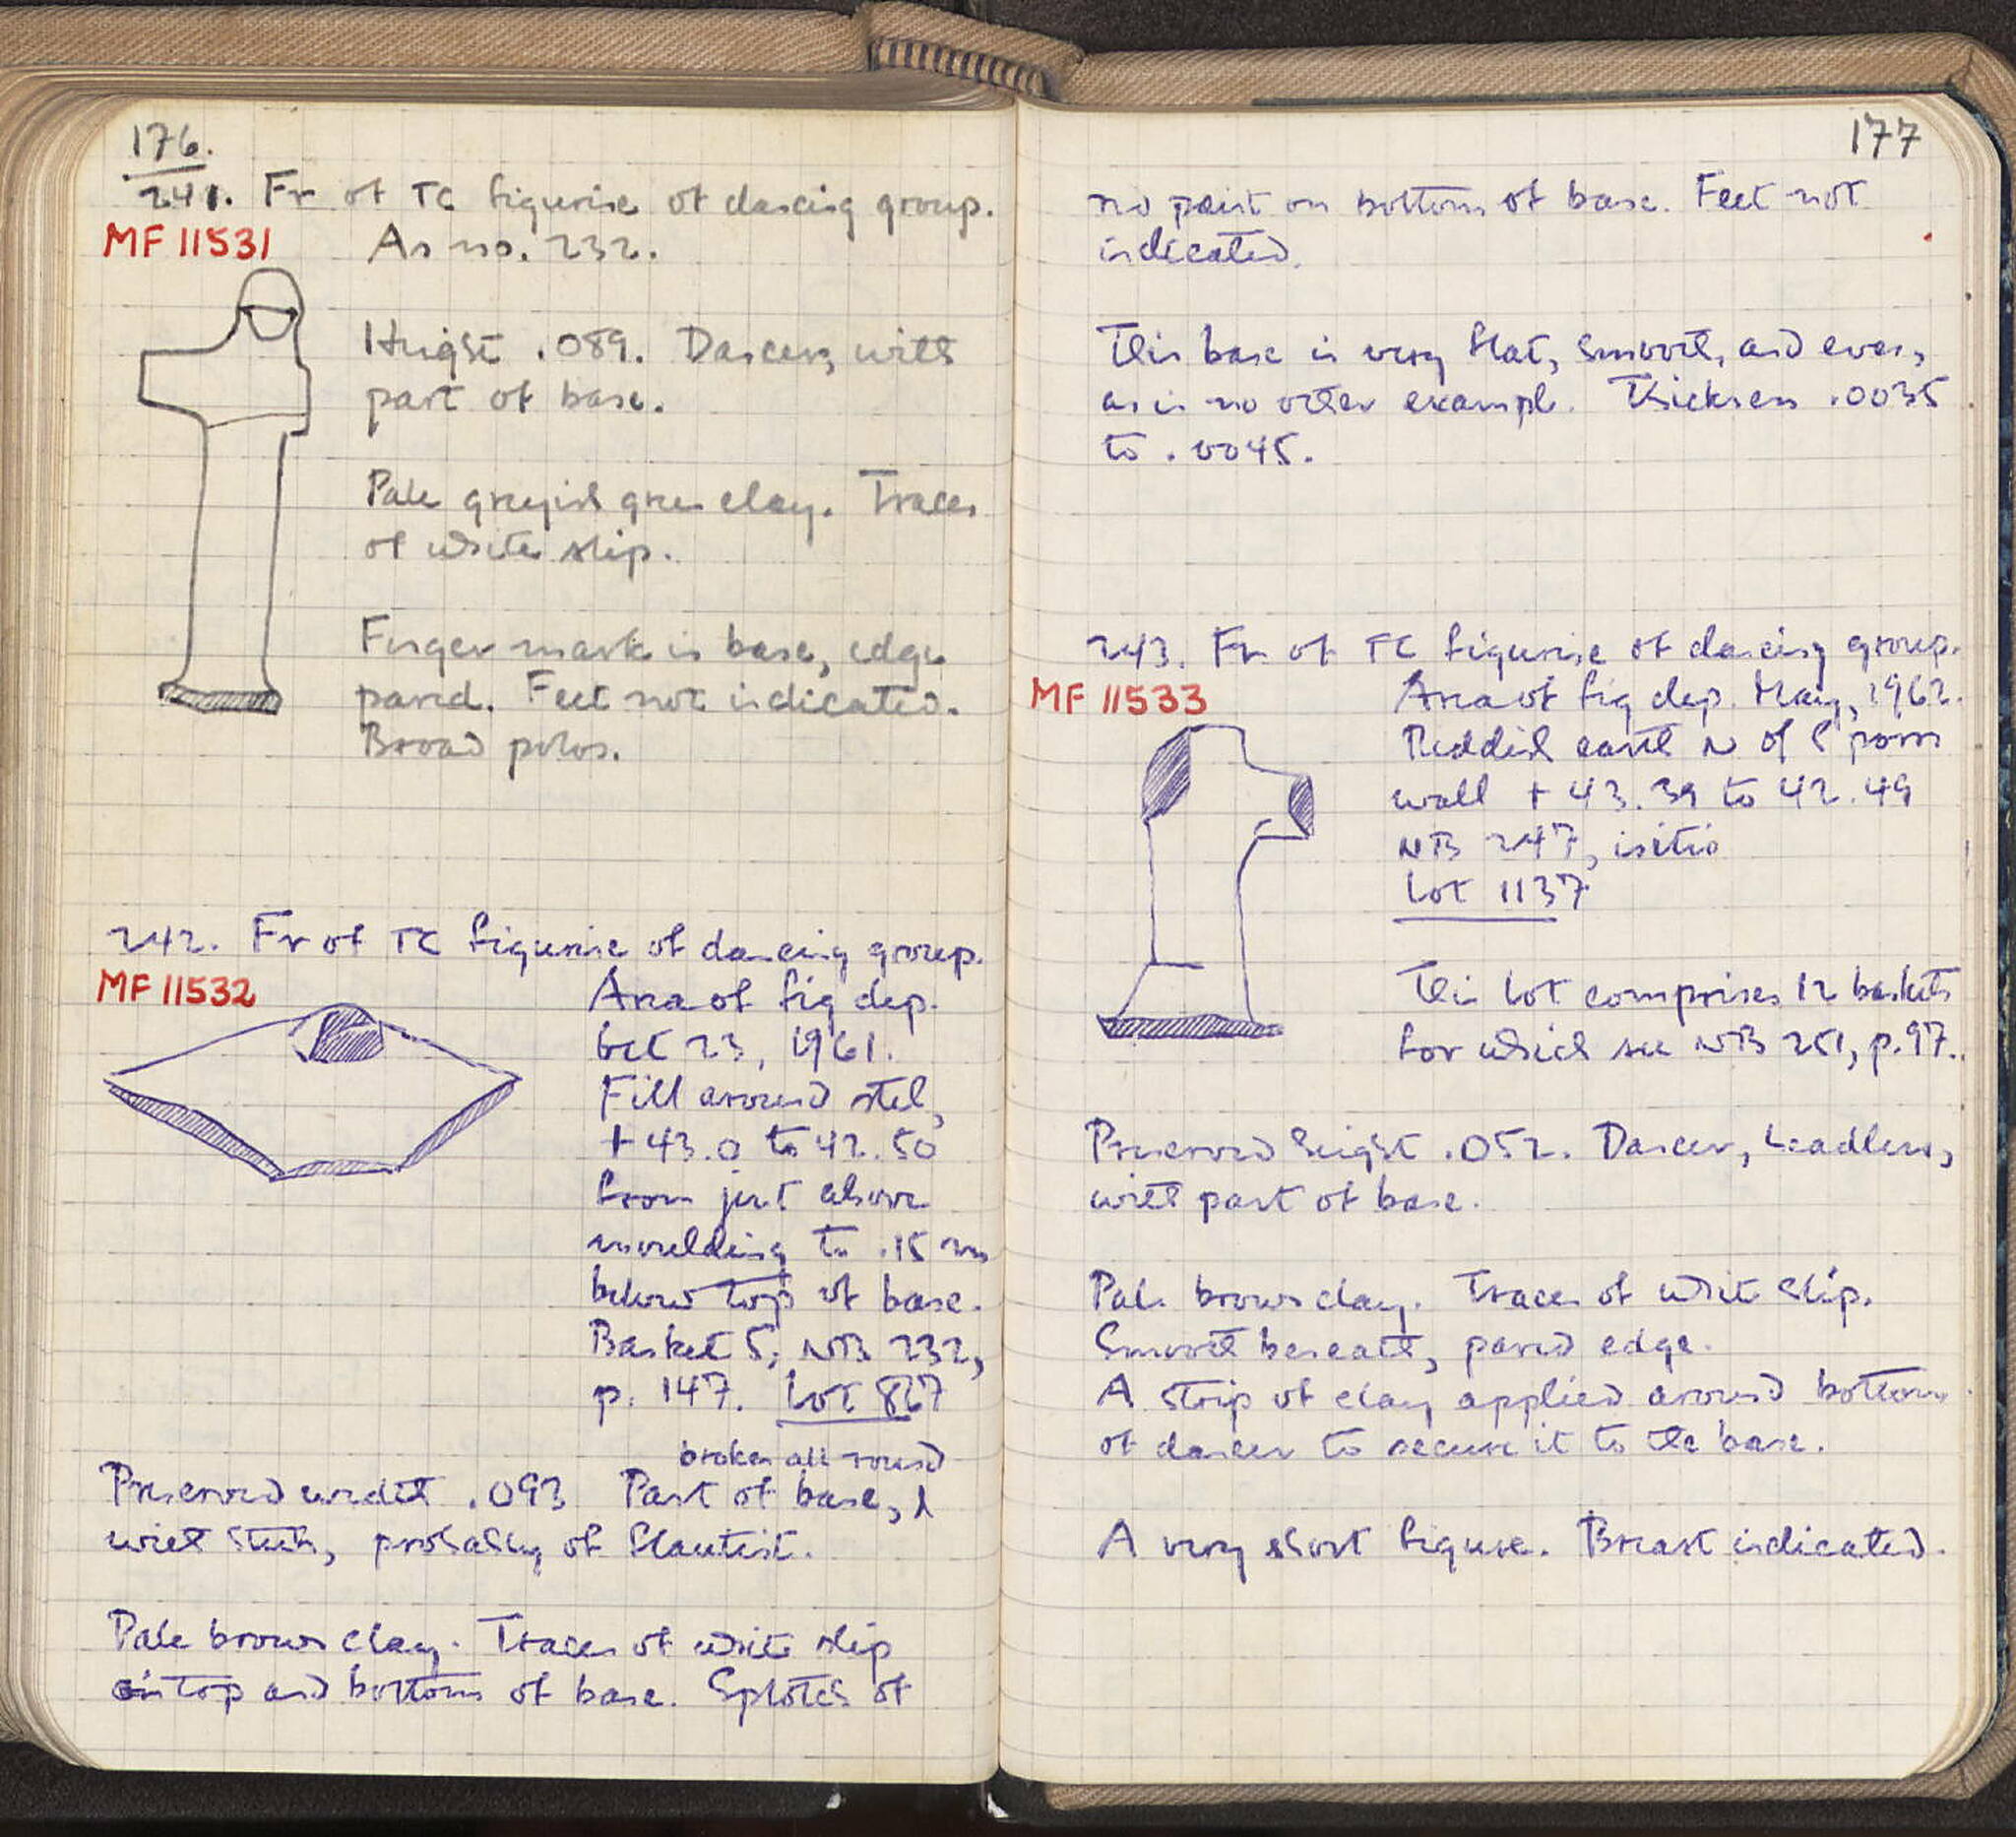 176.
241. Fr of TC figurine of dancing group.
MF 11531 As no. 232.
Height .089. Dancer, with
part of base.
Pale greyish green clay. Traces
of white slip.
Finger mark in base, edge
pared. Feet not indicated.
Broad polos.
242. Fr of TC figurine of dancing group.
MF 11532 Area of fig dep.
Oct 23, 1961.
Fill around stel,
+43.0 to 42.50
from just above
moulding to .15 m
below top of base.
Basket 5; NB 232,
p. 147. Lot 867
broken all round
Preserved width .093 Part of base, λ
with stub, probably of flautist.
Pale brown clay. Traces of white slip
on top and bottom of base. Splotch of
177
no paint on bottom of base. Feet not
indicated.
This base is very flat, smooth, and even,
as in no other example. Thickness .0035
to .0045.
243. Fr of TC figurine of dancing group.
MF 11533 Area of fig dep. May, 1962.
Reddish earth N of S poros
wall +43.39 to 42.49
NB 247, initio
Lot 1137
This lot comprises 12 baskets
for which see NB 251, p. 97.
Preserved height .052. Dancer, headless,
with part of base.
Pale brown clay. Traces of white slip.
Smooth beneath, pared edge.
A strip of clay applied around bottom
of dancer to secure it to the base.
A very short figure. Breast indicated.